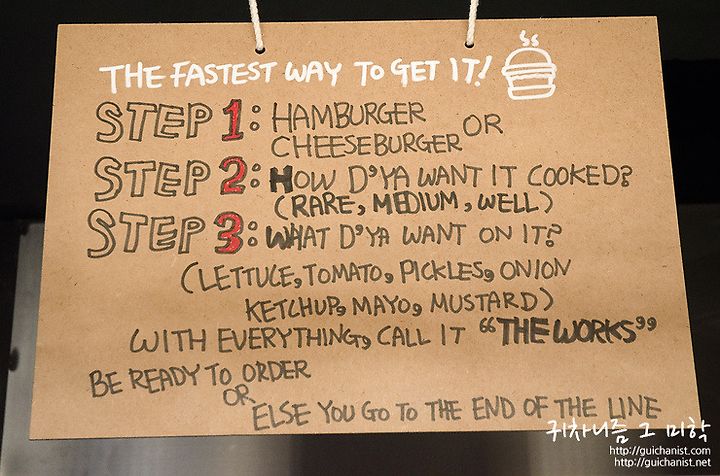 THE FASTEST WAY TO GET IT!
STEP 1: HAMBURGER OR
CHEESEBURGER
STEP 2: HOW D'YA WANT IT COOKED?
(RARE, MEDIUM, WELL)
STEP 3: WHAT D'YA WANT ON IT?
(LETTUCE, TOMATO, PICKLES, ONION
KETCHUP, MAYO, MUSTARD)
WITH EVERYTHING, CALL IT "THE WORKS"
BE READY TO ORDER
OR
ELSE YOU GO TO THE END OF THE LINE
귀차니즘 그 미학
http://guichanist.com
http://guichanist.net